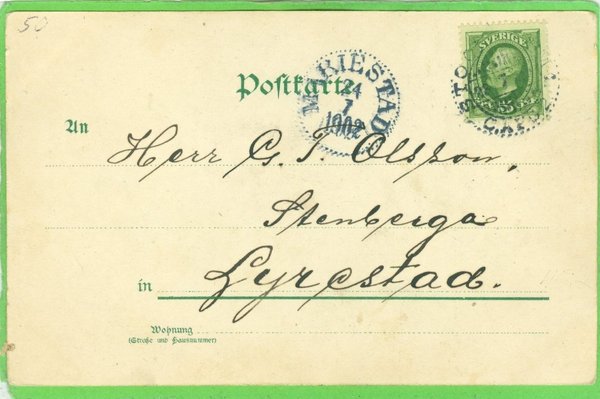 50
SVERIGE
5 5
Postkarte
MARIESTAD
24
7
1902
An
Herr G. T. Olsson,
Stenberga
in Lyrestad.
Wohnung
(Straße und Hausnummer)